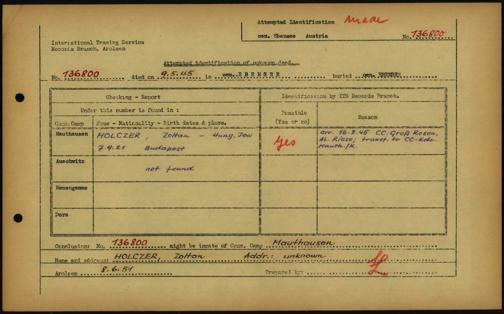 Attempted Identification made
cem. Ebensee Austria No. 136800
International Tracing Service
Records Branch, Arolsen
Attempted identification of unknown dead.
No. 136800 died on 9.5.45 in cem. EBENSEE buried cem. EBENSEE
Checking - Report
Identification by ITS Records Branch.
Under this number is found in :
Possible (Yes or no)
Reason
Conc.Camp Name - Nationality - Birth dates & place.
Mauthausen HOLCZER, Zoltan - Hung. Jew
7.9.25 Budapest
Yes
arr. 16.2.45 CC. Groß Rosen,
AL. Riese; transf. to CC-Kdo.
Mauth./
Auschwitz
not found
Neuengamme
Dora
Conclusion: No. 136800 might be inmate of Conc. Camp Mauthausen
Name and address: HOLCZER, Zoltan Addr.: unknown
Arolsen 8.6.51 Prepared by: